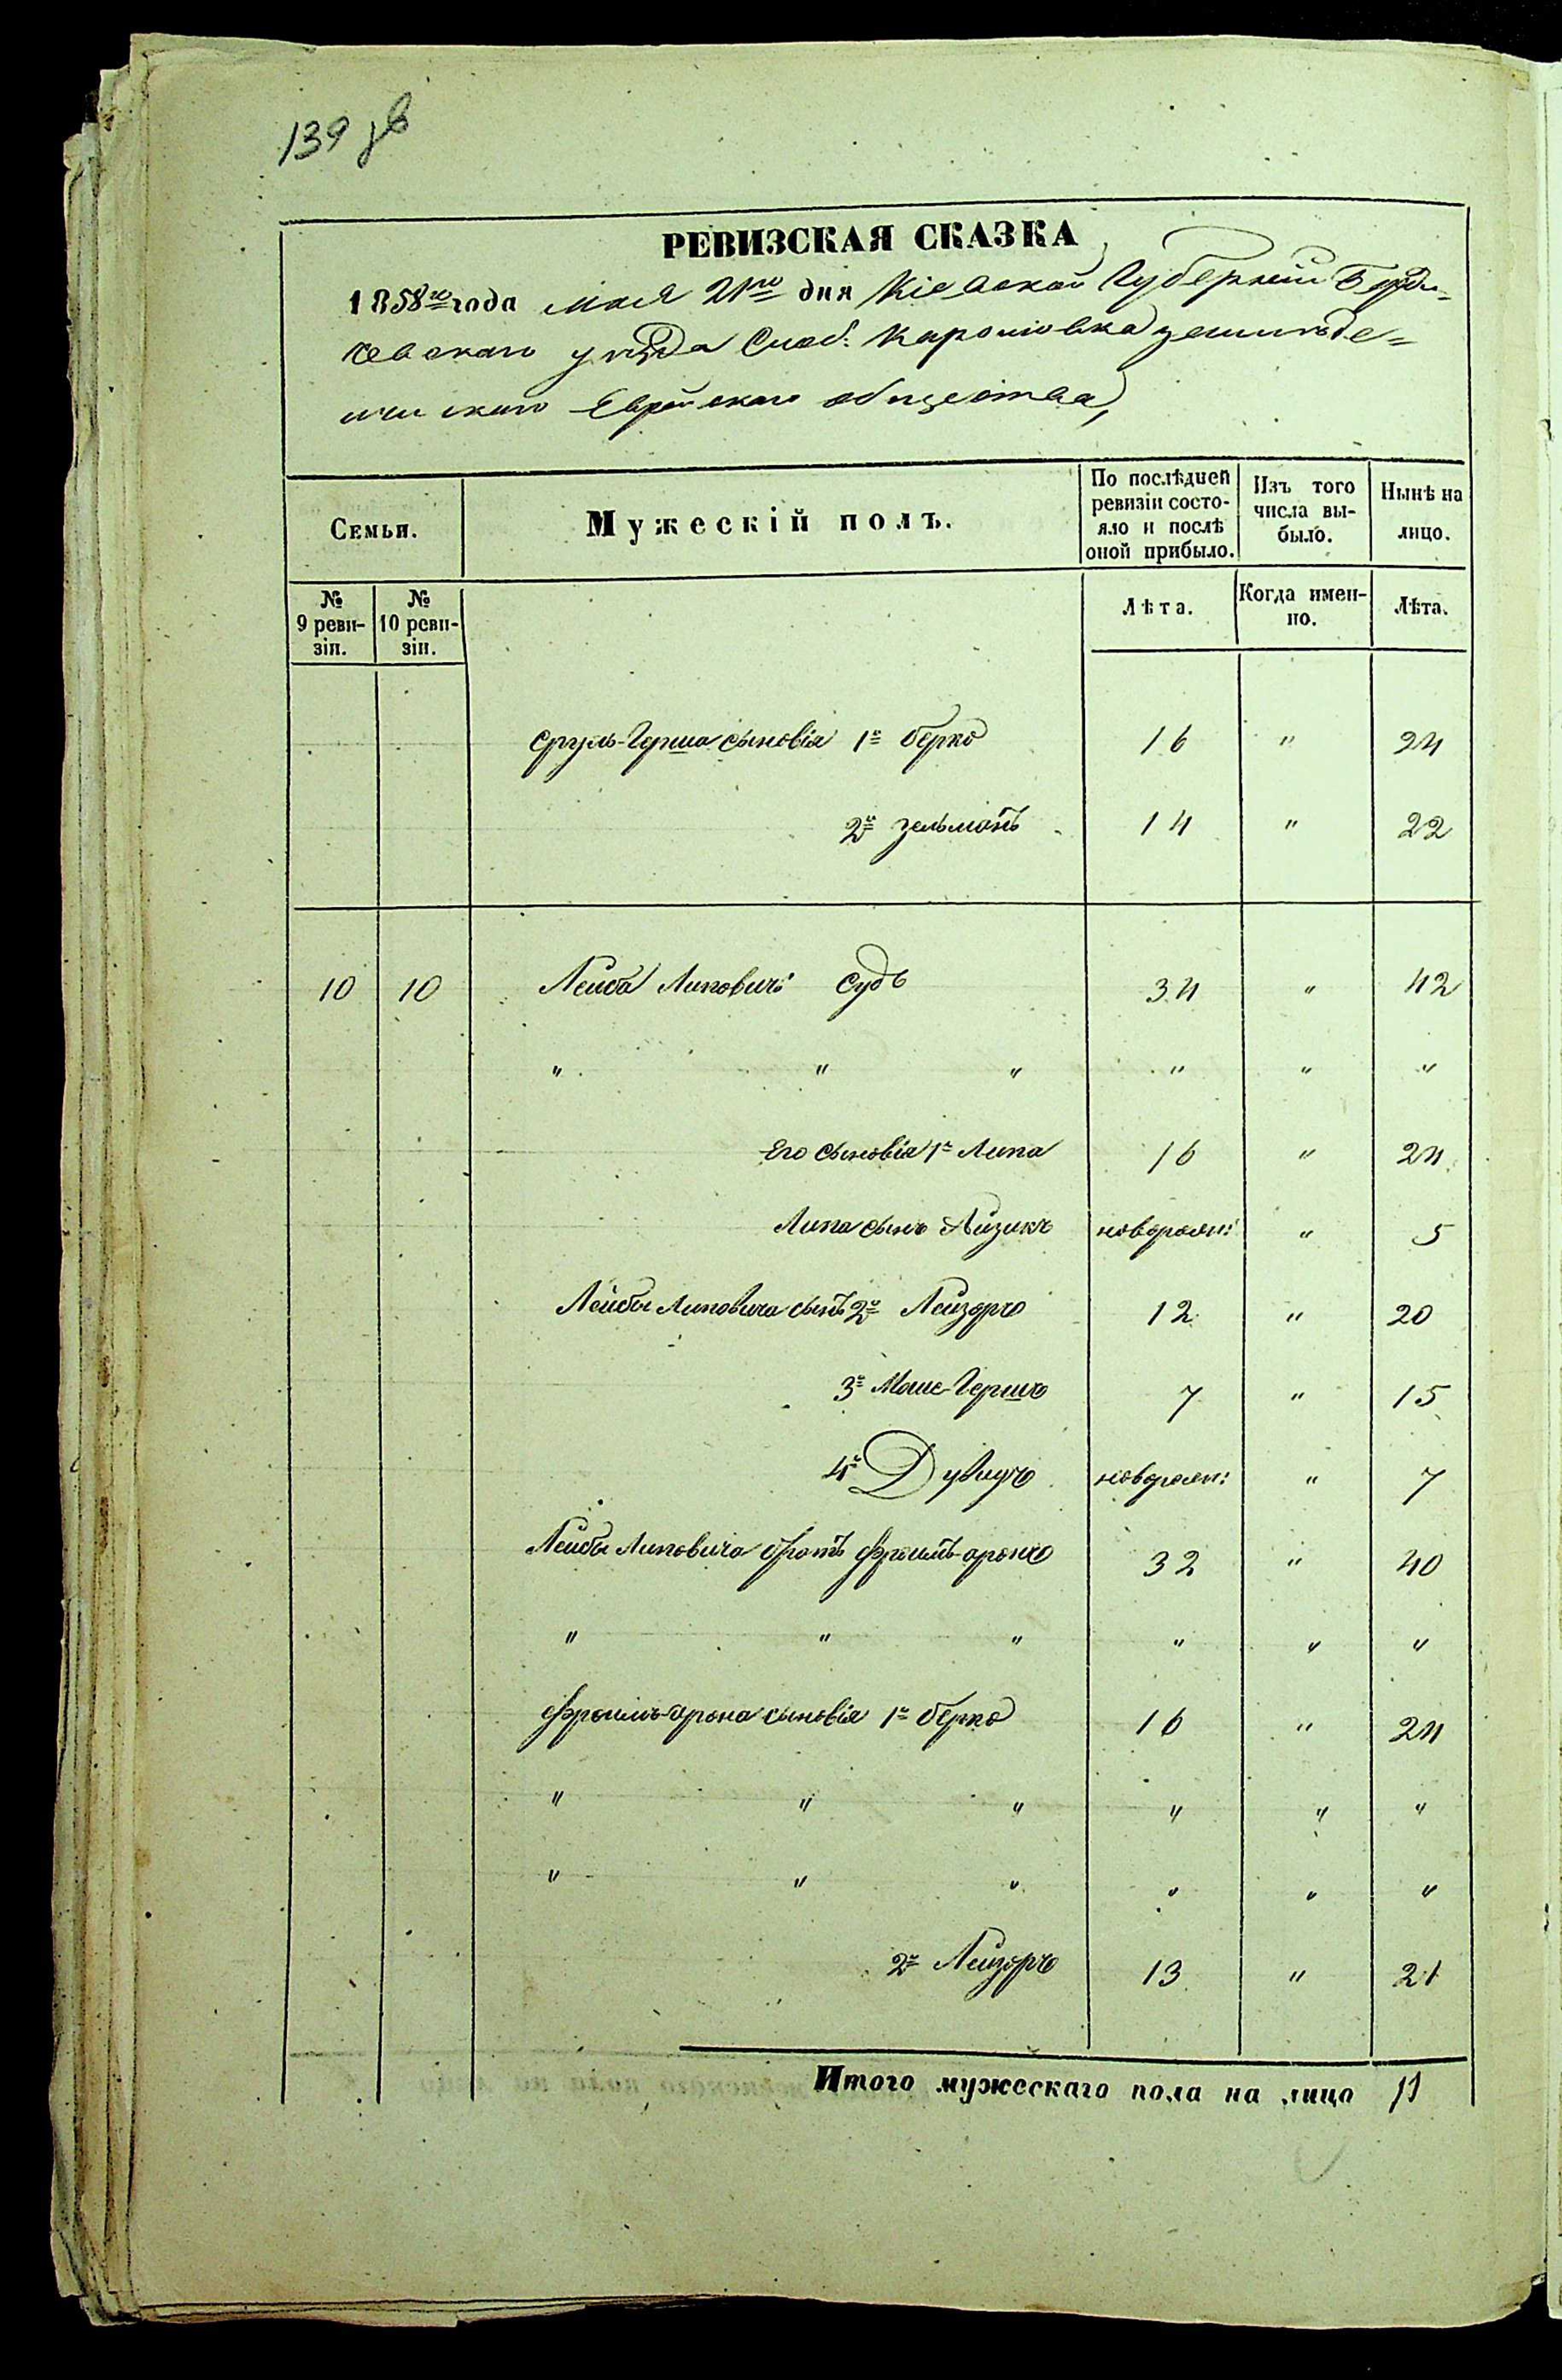 139 зв
РЕВИЗСКАЯ СКАЗКА
1858го года мая 21го дня Кіевской Губерніи Берди=
чевскаго уѣзда Слоб: земледе=
льческаго Еврейскаго общества,
Семьи.
Мужескій полъ.
По послѣдней ревизіи состояло и послѣ оной прибыло.
Изъ того числа выбыло.
Нынѣ на лицо.
№ 9 ревизіи.
№ 10 ревизіи.
Лѣта.
Когда именно.
Лѣта.
Сруль-Герша сыновія 1й Берко 16 " 24
2й Зельманъ 14 " 22
10 10 Лейба Липовичъ Судъ 34 " 42
" " " " " "
Его сыновія 1й Липа 16 " 24
Липа сынъ Айзикъ новорожн: " 5
Лейбы Липовича сынъ 2й Лейзоръ 12 " 20
3й Моше-Гершъ 7 " 15
4й новорожн: " 7
Лейбы Липовича братъ Фроимъ-Аронъ 32 " 40
" " " " " "
Фроимъ-Арона сыновія 1й Берко 16 " 24
" " " " " "
" " " " " "
2й Лейзоръ 13 " 21
Итого мужескаго пола на лицо 11